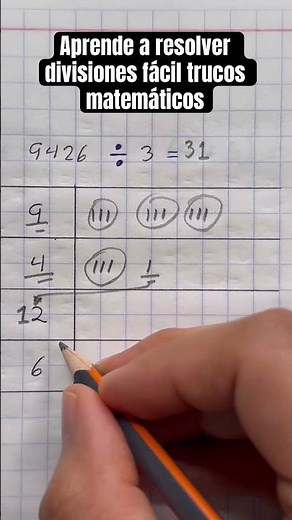 Aprende a resolver
divisiones fácil trucos
matemáticos
9426 ÷ 3 = 31
9 III III III
4 III 1
12
6